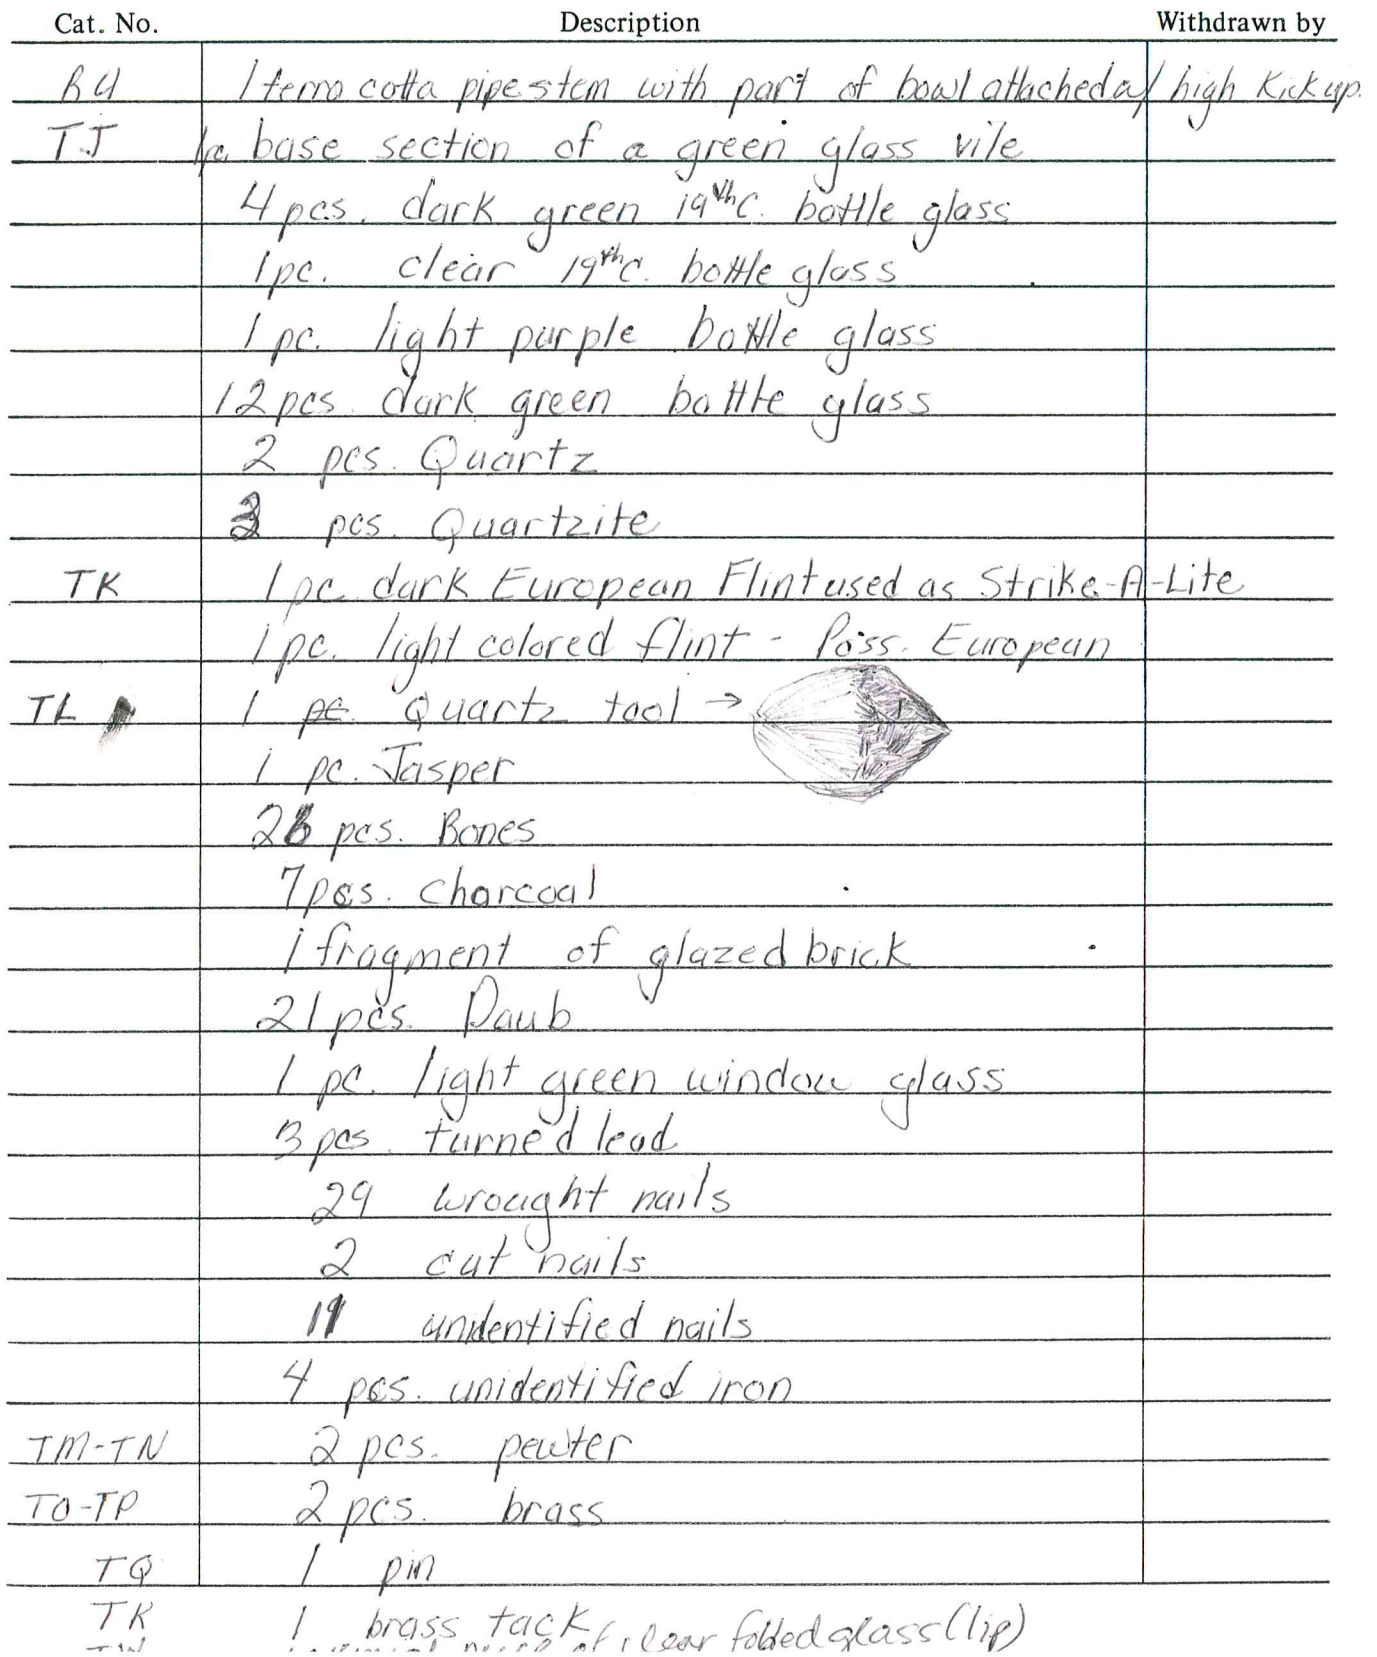 Cat. No. Description Withdrawn by
1 terra cotta pipe stem with part of bowl attached w/ high Kick up.
TJ 1pc. base section of a green glass vile
4 pcs. dark green 19thC. bottle glass
1pc. clear 19thC. bottle glass
1 pc. light purple bottle glass
12 pcs. dark green bottle glass
2 pcs. Quartz
pcs. Quartzite
TK 1 pc. dark European Flint used as Strike-A-Lite
1 pc. light colored flint - Poss. European
TL 1 pc. Quartz tool →
1 pc. Jasper
pcs. Bones
7 pcs. charcoal
1 fragment of glazed brick
21 pcs. Daub
1 pc. light green window glass
3 pcs. turned lead
29 wrought nails
2 cut nails
unidentified nails
4 pcs. unidentified iron
TM-TN 2 pcs. pewter
TO-TP 2 pcs. brass
TQ 1 pin
TR 1 brass tack
of clear folded glass (lip)